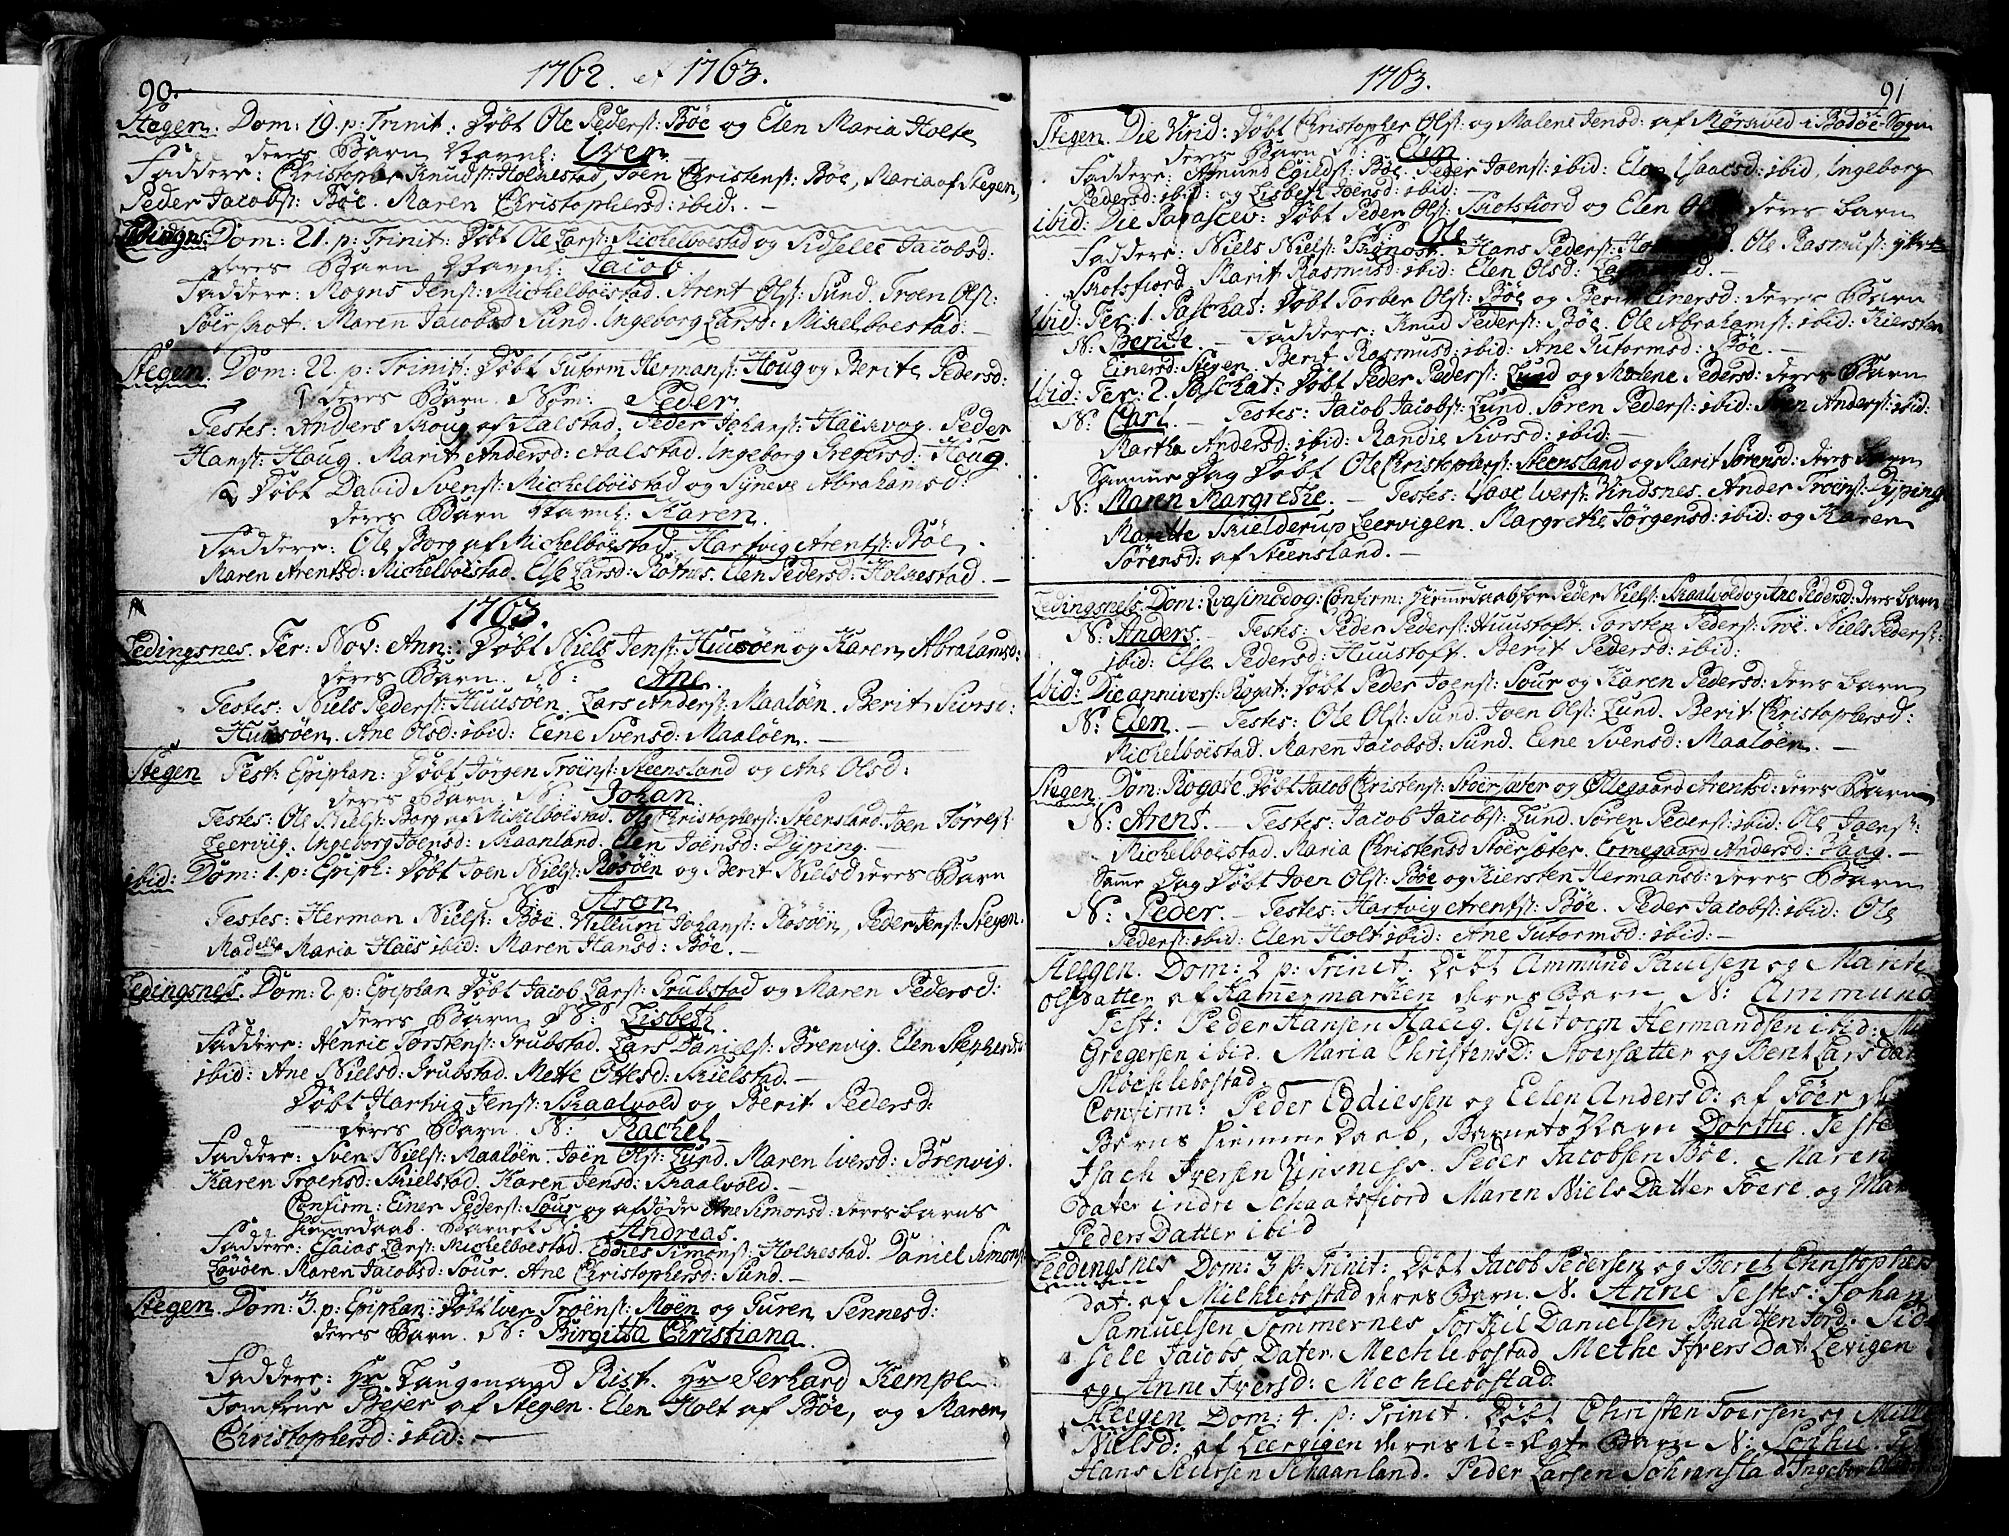 90.
1762. et 1763.
Stegen. Dom: 19. p: Trinit: Døbt Ole Peders: Bøe og Elen Maria Holte
deres Barn Navnl: Iver
Faddere: Christopher Knuds: Holkestad, Joen Christens: Bøe, Maria af Stegen,
Peder Jacobs: Bøe. Maren Christophersd: ibid: —
Dom: 21. p: Trinit: Døbt Ole Lars: Michelboestad og Sidselle Jacobsd:
deres Barn Navnl: Jacob
Faddere: Mogns Jens: Michelboistad. Arent Ols: Sund. Troen Ols:
Maren Jacobsd Sund. Ingeborg Larsd: Mikelboestad: —
Stegen. Dom: 22. p: Trinit: Døbt Gutorm Hermans: Houg og Berite Pedersd:
deres Barn. Nom: Peder
Testes: Anders Skoug af Aalstad. Peder Johans: Peder
Hans: Haug. Marit Andersd: Aalstad. Ingeborg Gregersd: Houg.
Døbt David Svens: Michelboistad og Syneve Abrahamsd:
deres Barn Navnl: Karen.
Faddere: Ole Borg af Michelboistad. Hartvig Arents: Bøe.
Maren Arentsd: Michelboistad. Else Larsd: Elen Pedersd: Holkestad. —
1763.
Ledingsnes. Fer: Nov: Ann: Døbt Niels Jens: Huusøen og Karen Abrahamsd:
deres Barn. N: Ane
Testes: Niels Peders: Huusøen. Lars Anders: Maaløen. Berit Sivrsd:
Huusøen. Ane Olsd: ibid: Eene Svensd: Maaløen. —
Stegen Fest: Epiphan: Døbt Jørgen Troens: Steensland og Ane Olsd:
deres Barn N: Johan
Testes: Ole Niels: Borg af Mickelboestad. Ole Christophers: Steensland. Joen
Leervig. Ingeborg Joensd: Skaanland. Elen Joensd: Dyping. —
ibid: Dom: 1. p: Epiph: Døbt Joen Niels: Røsøen og Berit Nielsd deres Barn
N: Aron
Testes: Herman Niels: Bøe. Willum Johans: Røsøen, Peder Jens: Stegen.
Madelle Maria Haës ibid: Maren Hansd: Bøe. —
Ledingsnes. Dom: 2 p: Epiphan Døbt Jacob Lars: Grubstad og Maren Pedersd:
deres Barn N: Lisbeth
Faddere: Henric Torstens: Grubstad. Lars Daniels: Brenvig. Elen
ibid: Ane Nielsd: Grubstad. Mette Ottesd: Skielstad. —
Døbt Hartvig Jens: Skaalvold og Berit Pedersd:
deres Barn N: Rachel
Faddere: Sven Niels: Maaløen. Joen Ols: Lund. Maren Iversd: Brenvig.
Karen Troensd: Skielstad. Karen Jensd: Skaalvold. —
Confirm: Einer Peders: Sour og afdøde Ane Simonsd: deres barns
hiemmedaab. Barnet N: Andreas.
Faddere: Esaias Lars: Michelboestad. Eddies Simons: Holkestad. Daniel Simons:
Løvøen. Maren Jacobsd: Sour. Ane Christophersd: Sund. —
Stegen. Dom: 3. p: Epiphan: Døbt Iver Troens: Moen og Guren Jennesd:
deres Barn. N: Birgitta Christiana
Faddere: Hr Laugmand Rist. Hr Gerhard Kempe.
Jomfrue Beyer af Stegen. Elen Holt af Bøe, og Maren
Christophersd: ibid: —
1763.
91
Stegen. Die Virid: Døbt Christopher Ols: og Malene Jensd: af Mørkved i Bodøe-Sogn
deres Barn N: Elen
Faddere: Amund Egilds: Bøe. Peder Joens: ibid: Elen Isaacsd: ibid, Ingeborg
Pedersd: ibid: og Lisbeth Joensd: ibid:
ibid: Die Parascev: Døbt Peder Ols: Skotsfiord og Elen deres barn
N: Ole
Faddere: Niels Niels: Hans Peders: Ole Rasmus:
Skotsfiord. Marit Rasmusd: ibid: Elen Olsd:
Ibid: Fer: 1. Paschat: Døbt Torber Ols: Bøe og Berit Einersd: deres Barn
N: Berite. — Faddere: Knud Peders: Bøe. Ole Abrahams: ibid: Kiersten
Einersd: Stegen. Berit Rasmusd: ibid: Ane Gutormsd: Bøe. —
Ibid: Fer: 2. Paschat: Døbt Peder Peders: Lund og Malene Pedersd: deres Barn
N: Carl. — Testes: Jacob Jacobs: Lund. Søren Peders: ibid: Sven Anders: ibid:
Martha Andersd: ibid: Randie Sivrsd: ibid: —
Samme Dag Døbt Ole Christophers: Steensland og Marit Sørensd: deres Barn
N: Maren Margrethe. — Testes: Isaac Ivers: Vindsnes. Ander Troens: Dyping
Marithe Skielderup Leervigen. Margrethe Jørgensd: ibid: og Karen
Sørensd: af Steensland. —
Ledingsnes. Dom: Qvasimodog: Confirm: Hiemmedaab for Peder Niels: Skaalvold og Ane Pedersd: deres barn
N: Anders. — Testes: Peder Peders: Huustoft. Torsten Peders: Troe. Niels Peders:
ibid: Else Pedersd: Huustoft. Berit Pedersd: ibid:
Ibid: Die annivers: Rogat: Døbt Peder Joens: Sour og Karen Pedersd: deres barn
N: Elen. — Testes: Ole Ols: Sund. Joen Ols: Lund. Berit Christophersd:
Michelboistad. Maren Jacobsd: Sund. Eene Svensd: Maaløen. —
Stegen. Dom: Rogate Døbt Jacob Christens: Stoersæter og Ollegaard Arentsd: deres Barn
N: Arent. — Testes: Jacob Jacobs: Lund. Søren Peders: ibid: Ole Joens:
Michelboistad. Maria Christensd Stoersæter. Ermegaard Andersd: Haug. —
Samme Dag Døbt Joen Ols: Bøe og Kiersten Hermansd: deres Barn
N: Peder. — Testes: Hartvig Arents: Bøe. Peder Jacobs: ibid: Ole
Peders: ibid: Elen Holt ibid: Ane Gutormsd: ibid: —
Steegen. Dom: 2 p: Trinit. Døbt Ammund Paulsen og Marit
Olsdatter af Kammermarken deres Barn N: Ammund
Test: Peder Hansen Haug. Gutorm Hermandsen ibid:
Gregersen ibid. Maria Christensd: Stoersætter og Berit Larsdat
Møchlebostad. —
Confirm: Peder Eddiessen og Eelen Andersd: af Føer
Børns Hiemme Daab, Barnets Navn Dorthe. Teste
Isach Iversen Vinsness. Peder Jacobsen Bøe. Maren
Dater indre Schaatsfiord Maren Niels Datter Foere og
Peders Datter ibid
Leedingsnes Dom: 3 p: Trinit: Døbt Jacob Pedersen og Beret Christophers
dat: af Michlebostad deres Barn N. Anne Testes: Johan
Samuelsen Sommernes Torkil Danielsen Baattenfiord. Sid-
sele Jacobs Dater. Mechlebostad Methe Ifvers Dat: Levigen
og Anne Ifversd: Mechlebostad.
Steegen Dom: 4. p: Trinit. Døbt Christen Toersen og
Nielsd: af Leervigen deres u=ægte Barn N: Sophie.
Hans Skaanland. Peder Larsen